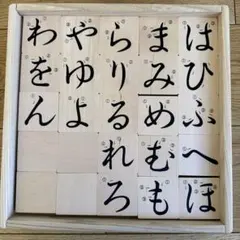 はひふへほ
まみむめも
らりるれろ
やゆよ
わをん